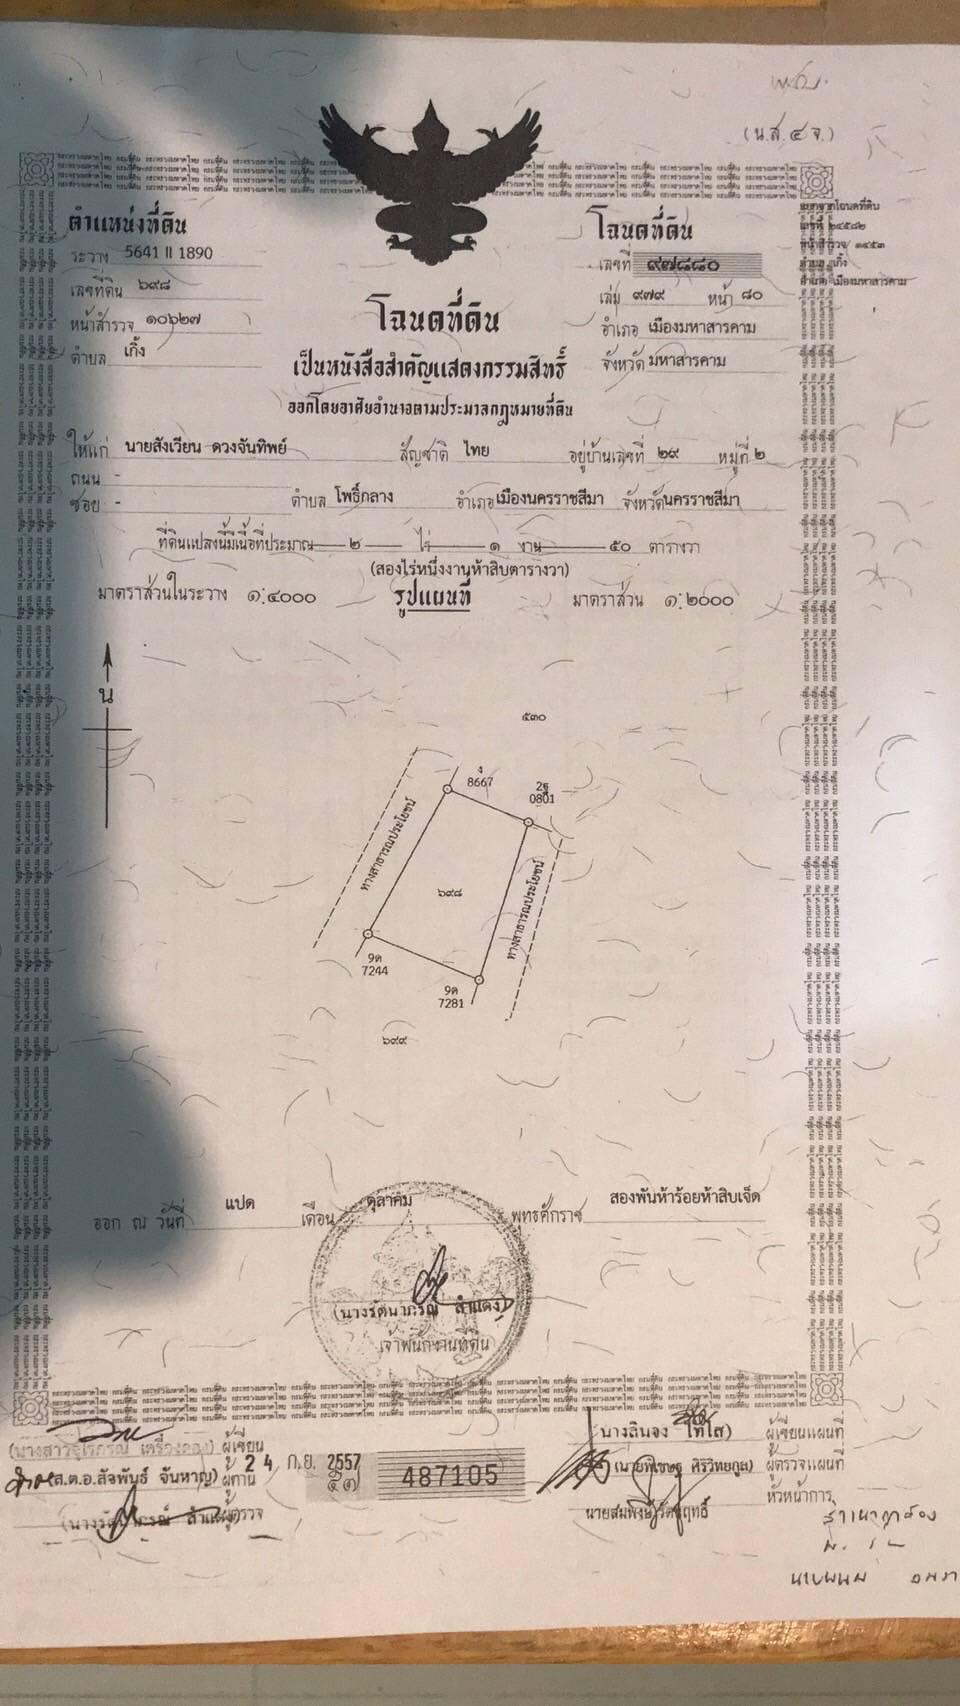 (น.ส.๔จ.)
ตำแหน่งที่ดิน
ระวาง 5641 II 1890
เลขที่ดิน ๖๙๘
หน้าสำรวจ ๑๐๖๒๗
ตำบล เกิ้ง
โฉนดที่ดิน
เลขที่ ๙๗๘๘๐
เล่ม ๙๗๙ หน้า ๘๐
อำเภอ เมืองมหาสารคาม
จังหวัด มหาสารคาม
แยกจากโฉนดที่ดิน
เลขที่ ๒๔๕๘๒
หน้าสำรวจ ๑๔๕๓
ตำบล เกิ้ง
อำเภอ เมืองมหาสารคาม
โฉนดที่ดิน
เป็นหนังสือสำคัญแสดงกรรมสิทธิ์
ออกโดยอาศัยอำนาจตามประมวลกฎหมายที่ดิน
ให้แก่ นายสังเวียน ดวงจันทิพย์ สัญชาติ ไทย อยู่บ้านเลขที่ ๒๙ หมู่ที่ ๒
ถนน -
ซอย - ตำบล โพธิ์กลาง อำเภอ เมืองนครราชสีมา จังหวัด นครราชสีมา
ที่ดินแปลงนี้มีเนื้อที่ประมาณ ๒ ไร่ ๑ งาน ๕๐ ตารางวา
(สองไร่หนึ่งงานห้าสิบตารางวา)
มาตราส่วนในระวาง ๑:๔๐๐๐ รูปแผนที่ มาตราส่วน ๑:๒๐๐๐
น
๕๓๐
ง
8667
2ฐ
0801
ทางสาธารณประโยชน์
๖๙๘
ทางสาธารณประโยชน์
9ด
7244
9ด
7281
๖๙๙
ออก ณ วันที่ แปด เดือน ตุลาคม พุทธศักราช สองพันห้าร้อยห้าสิบเจ็ด
(นางรัตนาภรณ์ สำแดง)
เจ้าพนักงานที่ดิน
ผู้เขียน
24 ก.ย. 2557
(ส.ต.อ.สัจพันธ์ จันหาญ) ผู้ทาน
ผู้ตรวจ
๕๓
487105
(นางลินจง ไทโส) ผู้เขียนแผนที่
(นายพิเชษฐ ศิริวิทยกูล) ผู้ตรวจแผนที่
หัวหน้าการ
สำเนาถูกต้อง